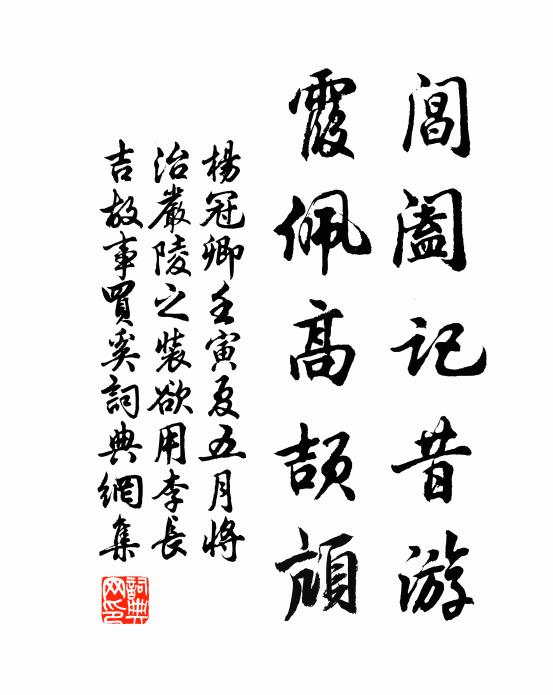 閶闔記昔游
霞佩高頡頏
楊冠卿壬寅夏五月將
治嚴陵之裝欲用李長
吉故事買奚詞典網集
詞典網印